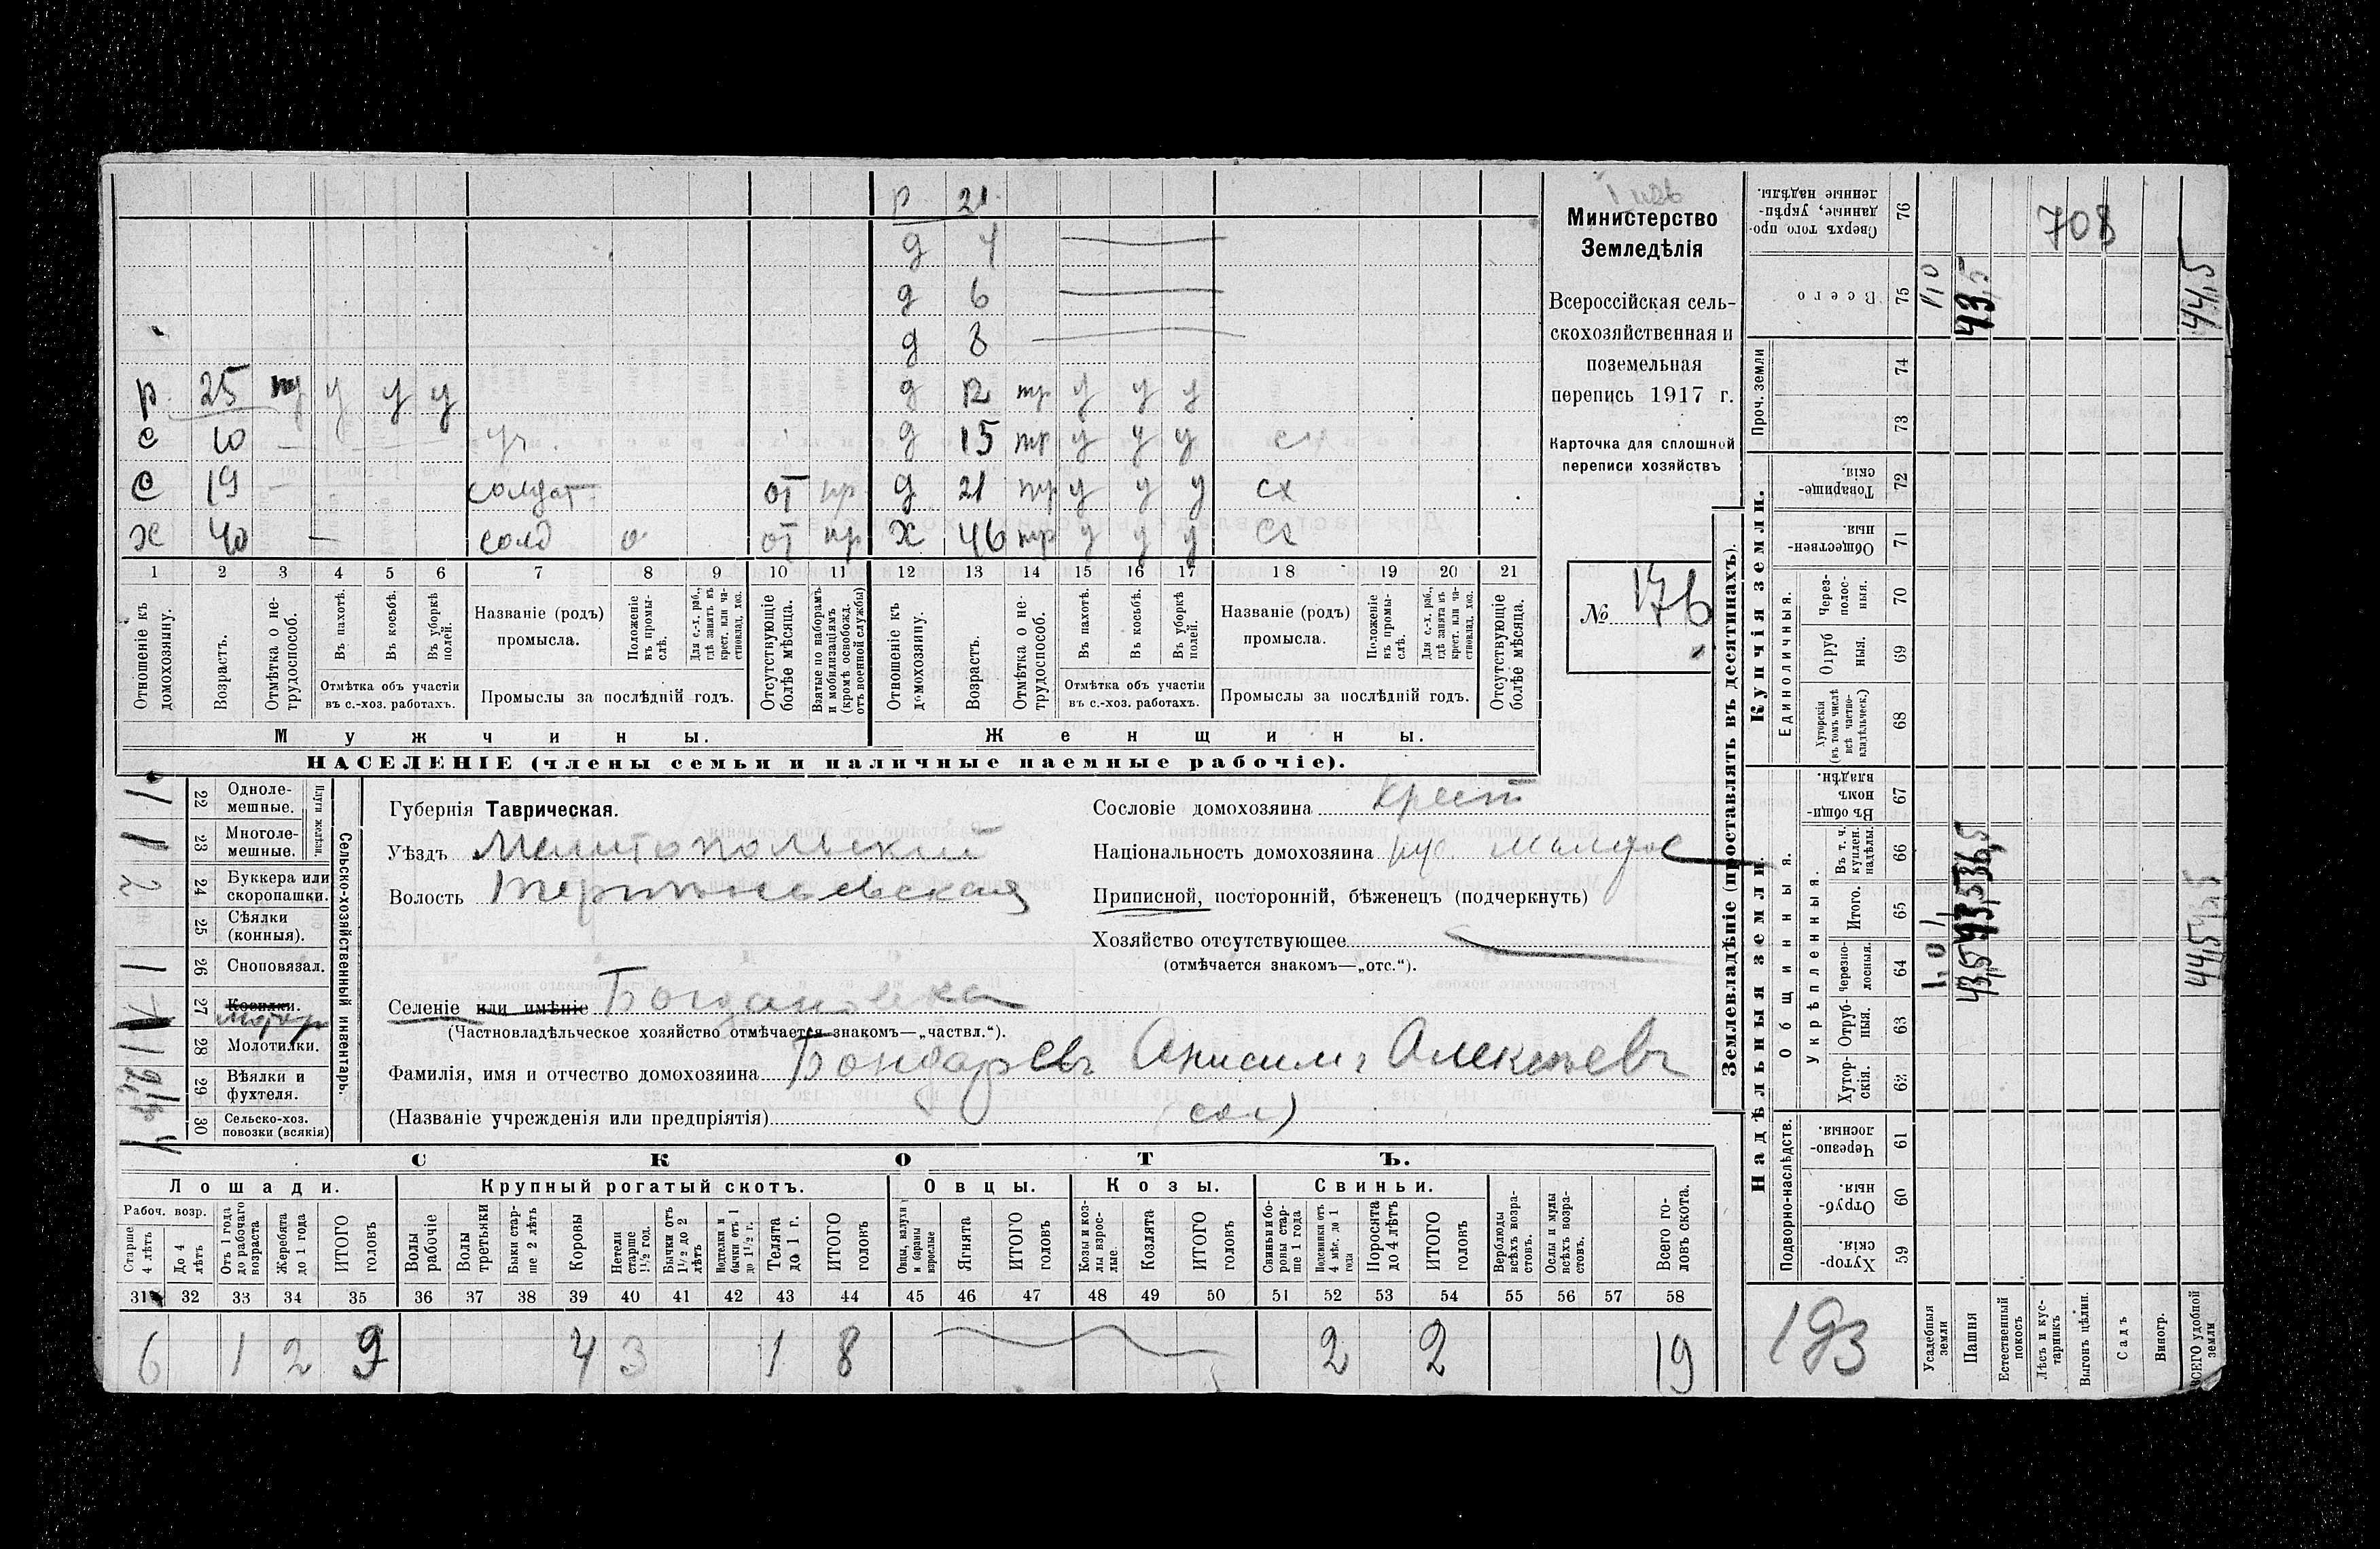 р 21
д 4
д 6
д 8
р 25 у у у д 12 нр у у у
с 10 — уч. д 15 нр у у у
с 19 — солдат от нр д 21 нр у у у сх
х 40 — солд о от нр х 46 нр у у у сх
1 2 3 4 5 6 7 8 9 10 11 12 13 14 15 16 17 18 19 20 21
Отношеніе къ домохозяину.
Возрастъ.
Отмѣтка о не-трудоспособ.
Въ пахотѣ.
Въ косьбѣ.
Въ уборкѣ полей.
Отмѣтка объ участіи въ с.-хоз. работахъ.
Названіе (родъ) промысла.
Положеніе въ промы-слѣ.
Для с.-х. раб., гдѣ занятъ въ крест. или ча-стновлад. хоз.
Промыслы за послѣдній годъ.
Отсутствующіе болѣе мѣсяца.
Взятые по наборамъ и мобилизаціямъ (кромѣ освобожд. отъ военной службы)
Отношеніе къ домохозяину.
Возрастъ.
Отмѣтка о не-трудоспособ.
Въ пахотѣ.
Въ косьбѣ.
Въ уборкѣ полей.
Отмѣтка объ участіи въ с.-хоз. работахъ.
Названіе (родъ) промысла.
Положеніе въ промы-слѣ.
Для с.-х. раб., гдѣ занята въ крест. или ча-стновлад. хоз.
Промыслы за послѣдній годъ.
Отсутствующіе болѣе мѣсяца.
Мужчины. Женщины.
НАСЕЛЕНІЕ (члены семьи и наличные наемные рабочіе).
Министерство
Земледѣлія
Всероссійская сель-
скохозяйственная и
поземельная
перепись 1917 г.
Карточка для сплошной
переписи хозяйствъ
№ 176
Сельско-хозяйственный инвентарь.
Плуги желѣзн.
22 Одноле-мешные. 1
23 Многоле-мешные. 1
24 Буккера или скоропашки. 2
25 Сѣялки (конныя).
26 Сноповязал. 1
27 Косилки.
28 Молотилки. 1
29 Вѣялки и фухтеля.
30 Сельско-хоз. повозки (всякія)
Губернія Таврическая.
Уѣздъ Мелитопольскій
Волость Терпѣньевская
Сословіе домохозяина Крест
Національность домохозяина рус.
Приписной, посторонній, бѣженецъ (подчеркнуть)
Хозяйство отсутствующее
(отмѣчается знакомъ—„отс.“).
Селеніе или имѣніе Богдановка
(Частновладѣльческое хозяйство отмѣчается знакомъ—„частвл.“).
Фамилія, имя и отчество домохозяина Бондаревъ Анисимъ Алексѣевъ
(Названіе учрежденія или предпріятія)
СКОТЪ.
Лошади. Крупный рогатый скотъ. Овцы. Козы. Свиньи.
Рабоч. возр.
Старше 4 лѣтъ
До 4 лѣтъ
Отъ 1 года до рабочаго возраста
Жеребята до 1 года
ИТОГО головъ
Волы рабочіе
Волы третьяки
Быки стар-ше 2 лѣтъ
Коровы
Нетели старше 1½ год.
Бычки отъ 1½ до 2 лѣтъ
Подтелки и бычки отъ 1 до 1½ г.
Телята до 1 г.
ИТОГО головъ
Овцы, валухи и бараны взрослые
Ягнята
ИТОГО головъ
Козы и коз-лы взрос-лые.
Козлята
ИТОГО головъ
Свиньи и бо-ровы стар-ше 1 года
Подсвинки отъ 4 мѣс. до 1 года
Поросята до 4 лѣтъ
ИТОГО головъ
Верблюды всѣхъ возра-стовъ.
Ослы и мулы всѣхъ возра-стовъ.
Всего го-ловъ скота.
31 32 33 34 35 36 37 38 39 40 41 42 43 44 45 46 47 48 49 50 51 52 53 54 55 56 57 58
6 1 2 9 4 3 1 8 2 2 19
Землевладѣніе (проставлять въ десятинахъ).
Надѣльныя земли. Купчія земли.
Сверхъ того про-данные, укрѣп-ленные надѣлы. 76
708
Всего 75 1,0 43,5 44,5
Проч. земли 74 73
Товарище-скія. 72
Обществен-ныя. 71
Единоличныя.
Через-полос-ныя. 70
Отруб ныя. 69
Хуторскія (въ томъ числѣ всѣ частно-владѣльческ.) 68
Общинныя.
Въ общи-номъ владѣн. 67
Укрѣпленныя.
Въ т. ч. куплен. надѣлы. 66 36,5
Итого. 65
Черезпо-лосныя. 64 1,0 43,5 44,5
Отруб-ныя. 63
Хутор-скія. 62
Подворно-наслѣдств.
Черезпо-лосныя. 61
Отруб-ныя. 60
Хутор-скія. 59
193
Усадебныя земли
Пашня
Естественный покосъ
Лѣсъ и кус-тарникъ
Выгонъ цѣлин.
Садъ
Виногр.
ВСЕГО удобной земли